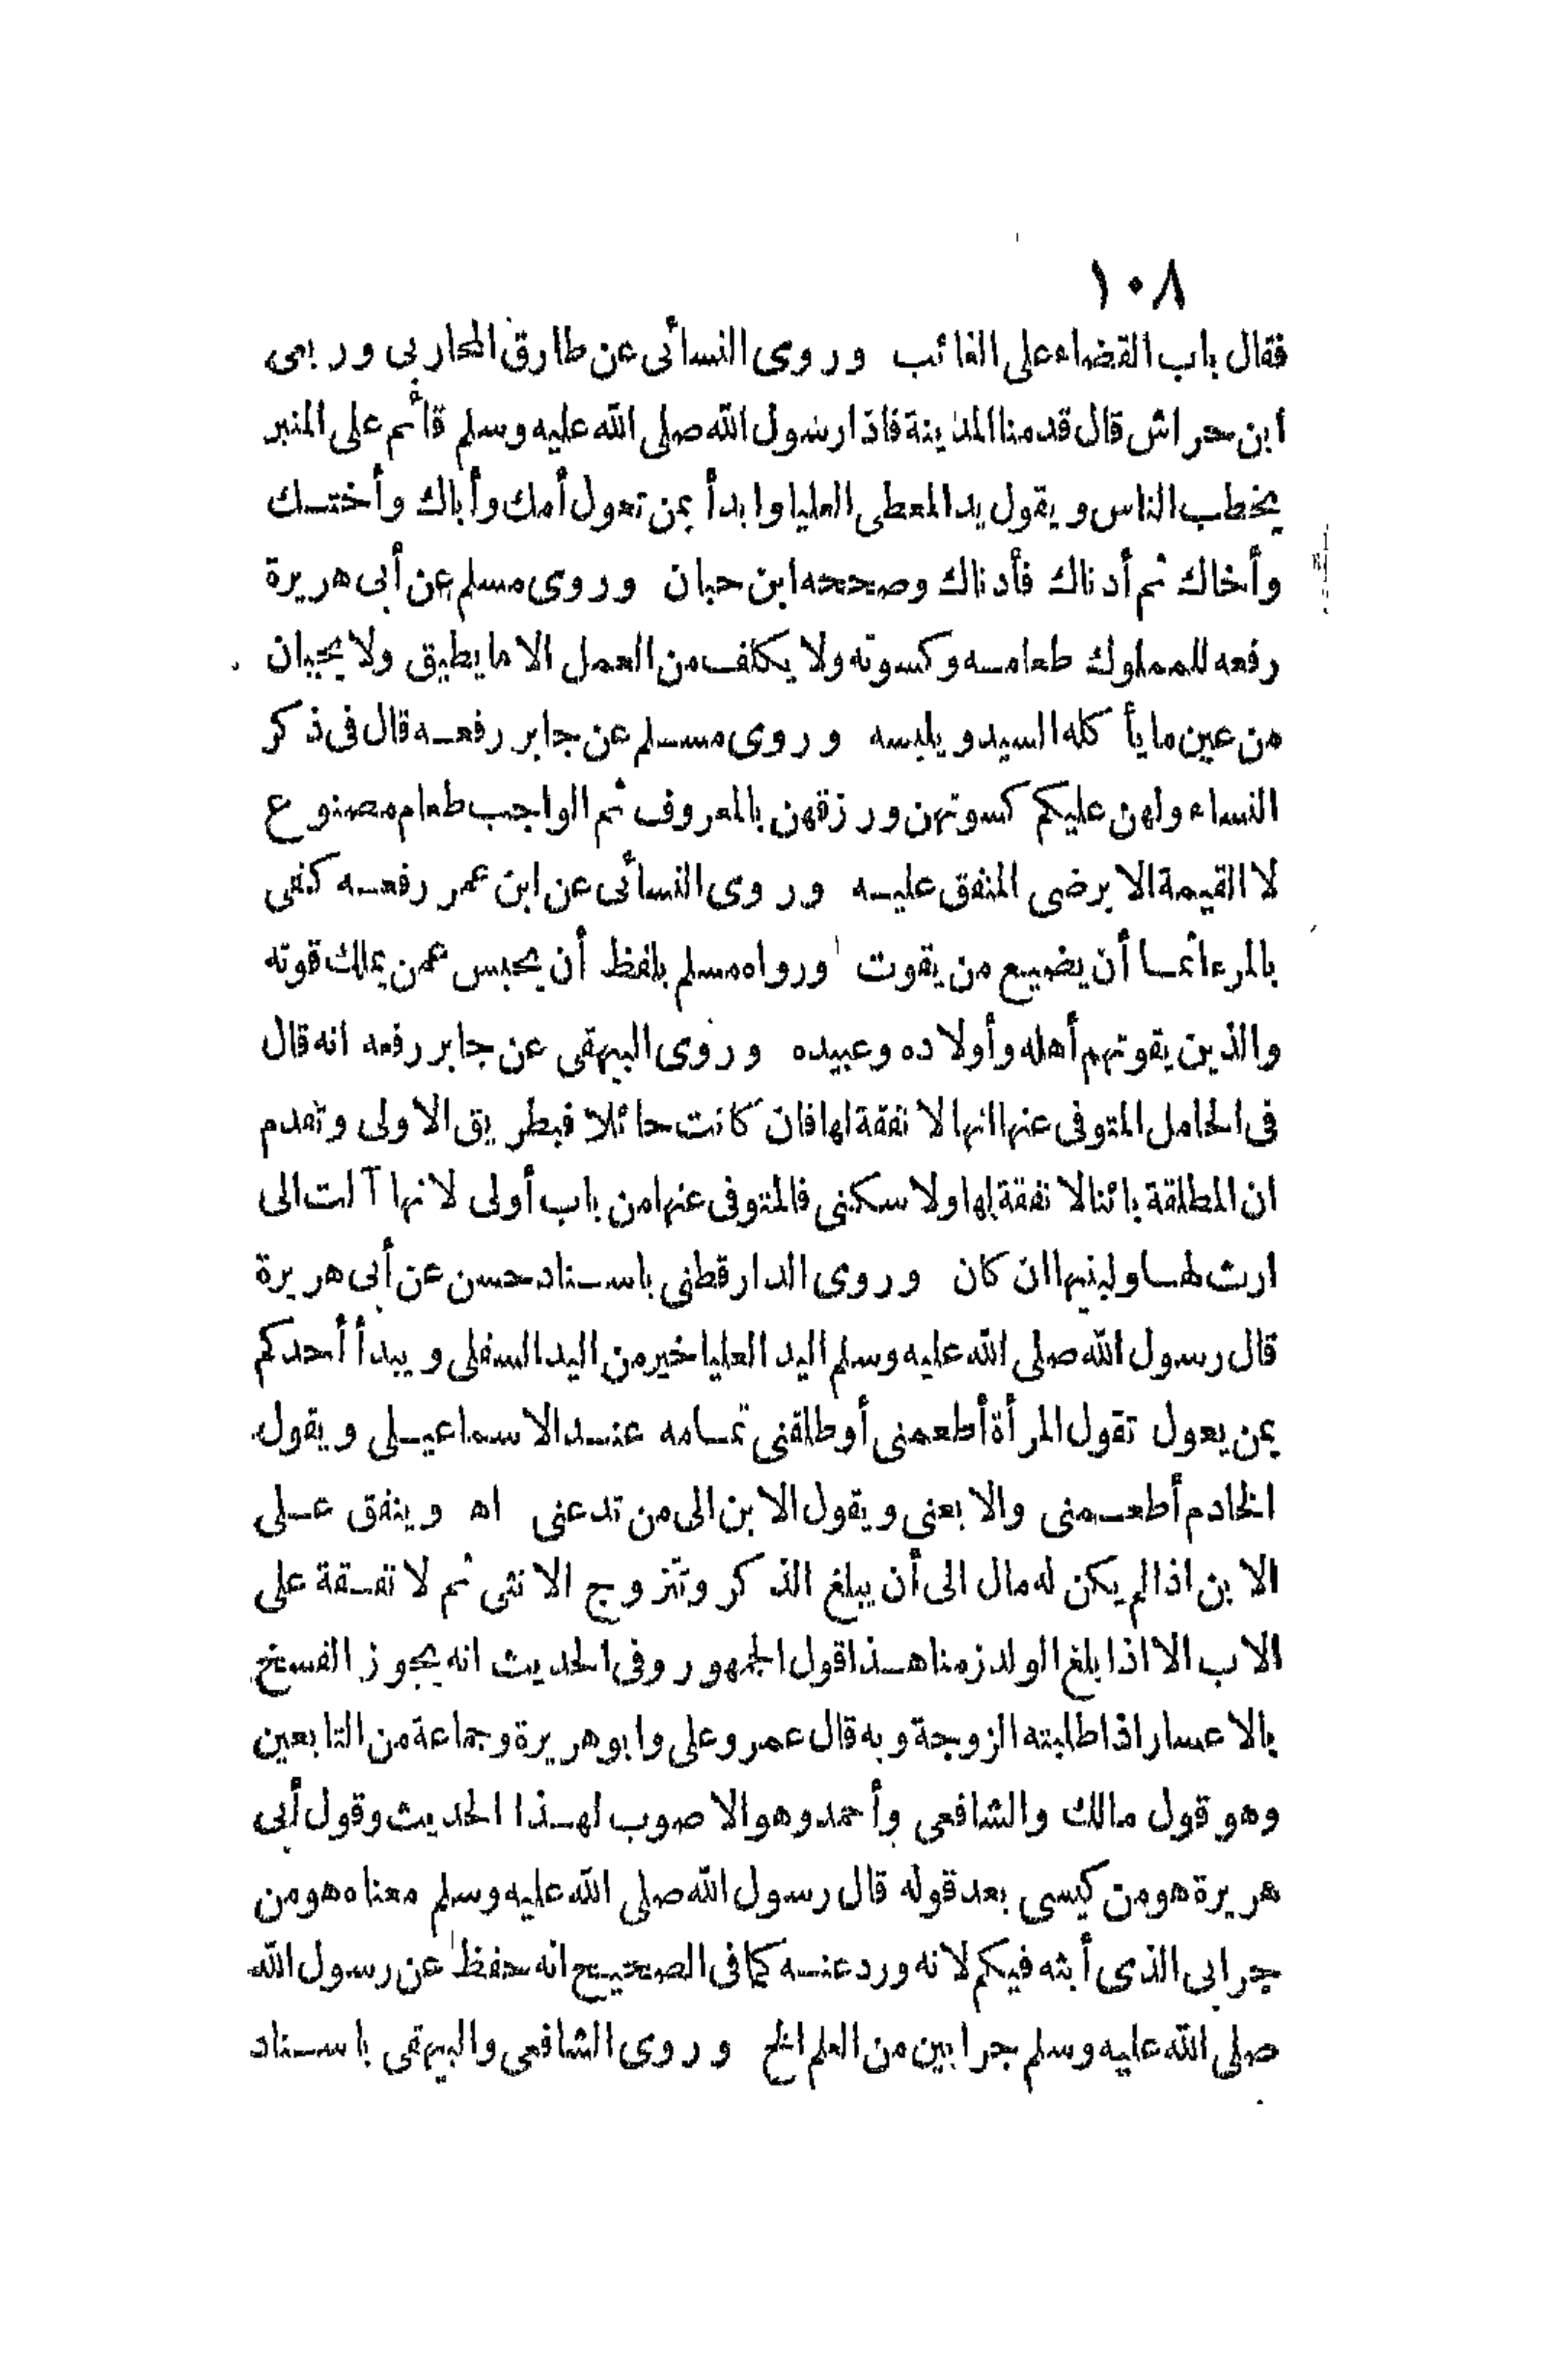 ١٠٨
فقال باب القضاء على الغائب وروى النسائى عن طارق المحاربى وربعى
ابن حراش قال قدمنا المدينة فاذا رسول الله صلى الله عليه وسلم قائم على المنبر
يخطب الناس ويقول يد المعطى العليا وابدأ بمن تعول أمك وأباك وأختك
وأخاك ثم أدناك فأدناك وصححه ابن حبان وروى مسلم عن أبى هريرة
رفعه للمملوك طعامه وكسوته ولا يكلف من العمل الا ما يطيق ولا يجبان
من عين ما يأكله السيد ويلبسه وروى مسلم عن جابر رفعه قال فى ذكر
النساء ولهن عليكم كسوتهن ورزقهن بالمعروف ثم الواجب طعام مصنوع
لا القيمة الا برضى المنفق عليه وروى النسائى عن ابن عمر رفعه كفى
بالمرء اثما أن يضيع من يقوت ورواه مسلم بلفظ أن يحبس عمن يملك قوته
والذين يقوتهم أهله وأولاده وعبيده وروى البيهقى عن جابر رفعه انه قال
فى الحامل المتوفى عنها انها لا نفقة لها فان كانت حائلا فبطريق الاولى وتقدم
ان المطلقة بائنا لا نفقة لها ولا سكنى فالمتوفى عنها من باب أولى لانها آلت الى
ارث لها ولبنيها ان كان وروى الدارقطنى باسناد حسن عن أبى هريرة
قال رسول الله صلى الله عليه وسلم اليد العليا خير من اليد السفلى ويبدأ أحدكم
بمن يعول تقول المرأة أطعمنى أو طلقنى تمامه عند الاسماعيلى ويقول
الخادم أطعمنى والا بعنى ويقول الابن الى من تدعنى اه وينفق على
الابن اذا لم يكن له مال الى أن يبلغ الذكر وتتزوج الانثى ثم لا نفقة على
الاب الا اذا بلغ الولد زمنا هذا قول الجمهور وفى الحديث انه يجوز الفسخ
بالاعسار اذا طلبته الزوجة وبه قال عمر وعلى وابو هريرة وجماعة من التابعين
وهو قول مالك والشافعى وأحمد وهو الاصوب لهذا الحديث وقول أبى
هريرة هو من كيسى بعد قوله قال رسول الله صلى الله عليه وسلم معناه هو من
جرابى الذى أبثه فيكم لانه ورد عنه كما فى الصحيح انه حفظ عن رسول الله
صلى الله عليه وسلم جرابين من العلم الخ وروى الشافعى والبيهقى باسناد